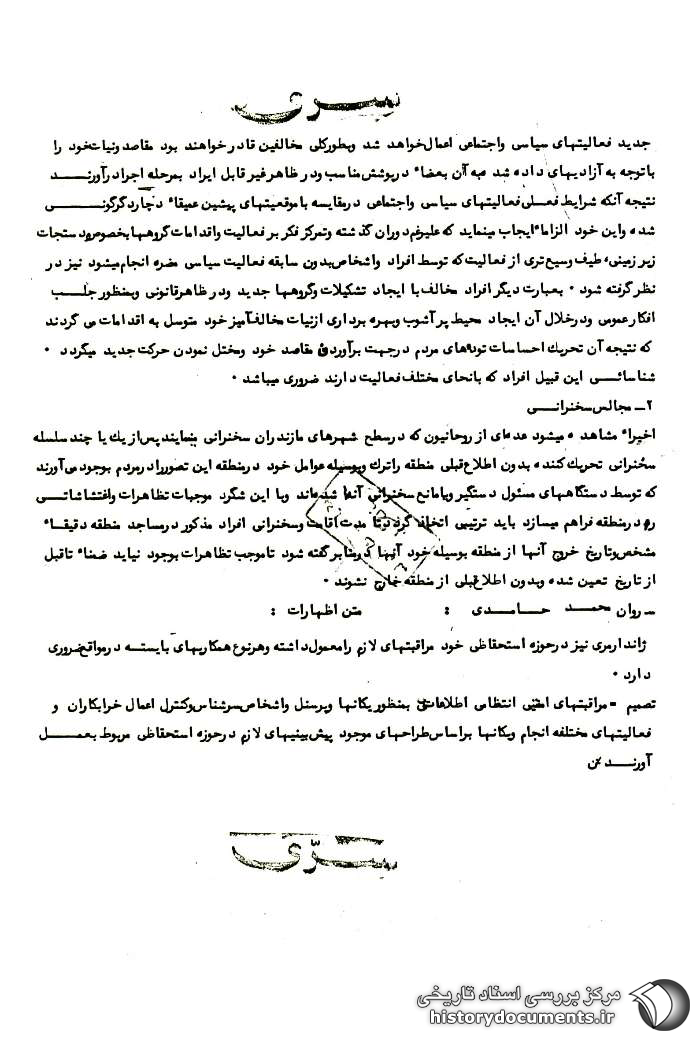 سری
جدید فعالیتهای سیاسی واجتماعی اعمال‌خواهد شد وبطورکلی مخالفین قادر خواهند بود مقاصد ونیات‌خود را
باتوجه به آزادیهای داده شد مه آن بعضاً درپوشش‌مناسب ودر ظاهر غیر قابل ایراد بمرحله اجرادرآورنــــد
نتیجه آنکه شرایط فعـلی فعالیتهای سیاسی واجتماعی درمقایسه با موقعیتهای پیشین عمیقاً دچاردگرگونــــی
شده واین خود الزاماً ایجاب مینماید که علیرغم دوران گذشته وتمرکز فکر بر فعالیت واقدامات گروهها بخصوص دستجات
زیر زمینی، طیف وسیع‌تری از فعالیت که توسط افراد واشخاص بدون سابقه فعالیت سیاسی مضره انجام میشود نیز در
نظر گرفته شود ۰ بعبارت دیگر افراد مخالف با ایجاد تشکیلات وگروهها جدید ودر ظاهر قانونی وبمنظور جلــب
افکار عمومی ودر خلال آن ایجاد محیط پر آشوب وبهره برداری ازنیات مخالف‌آمیز خود متوسل به اقدامات می گردند
که نتیجه آن تحریک احساسات توده‌های مردم درجهت برآوردن مقاصد خود ومختل نمودن حرکت جدید میگردد ۰
شناسائــی این قبیل افراد که بانحای مختلف فعالیت دارند ضروری میباشد ۰
۲ــ مجالس سخنرانــی
اخیراً مشاهده میشود عده‌ای از روحانیون که درسطح شهرهای مازندران سخنرانی بنمایند پس‌از یک یا چند سلسله
سخنرانی تحریک‌کننده بدون اطلاع قبلی منطقه راترک وبوسیله عوامل خود درمنطقه این تصور را درمردم بوجود می‌آورند
که توسط دستگاههای مسئول دستگیر ویامانع سخنرانی آنها شده‌اند وبا این شگرد موجبات تظاهرات واغتشاشاتی
را درمنطقه فراهم میسازد باید ترتیبی اتخاذ گردد تا مدت اقامت وسخنرانی افراد مذکور درمساجد منطقه دقیقاً
مشخص وتاریخ خرج آنها از منطقه بوسیله خود آنها گفته شود تا موجب تظاهرات بوجود نیاید ضمناً تاقبل
از تاریخ تعین شده وبدون اطلاع قبلی از منطقه خارج نشوند ۰
ــ روان محمد حامــدی : متن اظهارات :
ژاندارمری نیز درحوزه استحفاظی خود مراقبتهای لازم رامعمول‌داشته وهرنوع همکاریهای بایسته درمواقع‌ضروری
دارد ۰
تصمیم = مراقبتهای امنیتی انتظامی اطلاعاتی بمنظور یکانها وپرسنل واشخاص سرشناس وکنترل اعمال خرابکاران و
فعالیتهای مختلفه انجام ویکانها براساس طراحهای موجود پیش‌بینیهای لازم درحوزه استحفاظی مربوط بعمــل
آورنــد
سرّی
مرکز بررسی اسناد تاریخی
historydocuments.ir